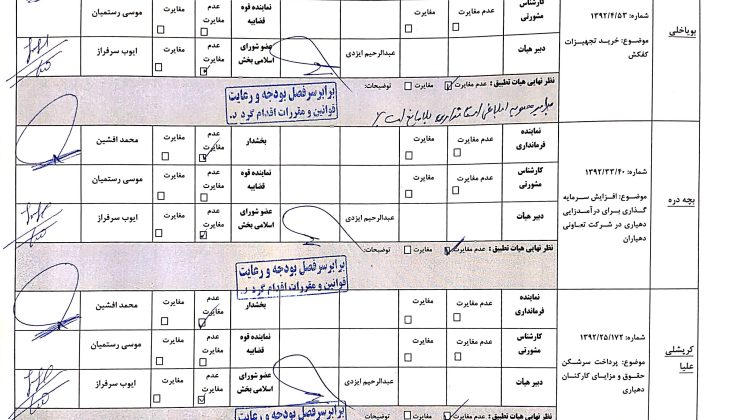 بویاخلی
شماره: ۱۳۹۲/۴/۵۳
موضوع: خرید تجهیزات
کفکش
کارشناس
مشورتی
عدم مغایرت
مغایرت
نماینده قوه
قضاییه
عدم
مغایرت
مغایرت
موسی رستمیان
دبیر هیأت
عبدالرحیم ایزدی
عضو شورای
اسلامی بخش
عدم
مغایرت
مغایرت
ایوب سرفراز
نظر نهایی هیات تطبیق: عدم مغایرت مغایرت توضیحات:
برابر سرفصل بودجه و رعایت
قوانین و مقررات اقدام گردد.
بچه دره
شماره: ۱۳۹۲/۳۳/۴۰
موضوع: افزایش سرمایه
گذاری برای درآمدزایی
دهیاری در شرکت تعاونی
دهیاران
نماینده
فرمانداری
عدم مغایرت
مغایرت
بخشدار
عدم
مغایرت
مغایرت
محمد افشین
کارشناس
مشورتی
عدم مغایرت
مغایرت
نماینده قوه
قضاییه
عدم
مغایرت
مغایرت
موسی رستمیان
دبیر هیأت
عبدالرحیم ایزدی
عضو شورای
اسلامی بخش
عدم
مغایرت
مغایرت
ایوب سرفراز
نظر نهایی هیات تطبیق: عدم مغایرت مغایرت توضیحات:
برابر سرفصل بودجه و رعایت
قوانین و مقررات اقدام گردد.
کریشلی
علیا
شماره: ۱۳۹۲/۲۵/۱۷۲
موضوع: پرداخت سرشکن
حقوق و مزایای کارکنان
دهیاری
نماینده
فرمانداری
عدم مغایرت
مغایرت
بخشدار
عدم
مغایرت
مغایرت
محمد افشین
کارشناس
مشورتی
عدم مغایرت
مغایرت
نماینده قوه
قضاییه
عدم
مغایرت
مغایرت
موسی رستمیان
دبیر هیأت
عبدالرحیم ایزدی
عضو شورای
اسلامی بخش
عدم
مغایرت
مغایرت
ایوب سرفراز
نظر نهایی هیات تطبیق: عدم مغایرت مغایرت توضیحات:
برابر سرفصل بودجه و رعایت